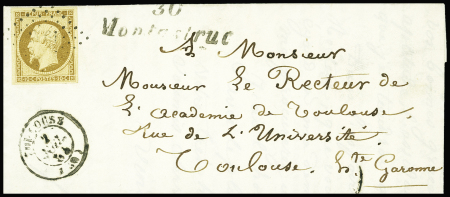 30
Montastruc
POSTES
A Monsieur
Monsieur Le Recteur de
L'Academie de Toulouse
Rue de L'Université
Toulouse, Hte Garonne
TOULOUSE